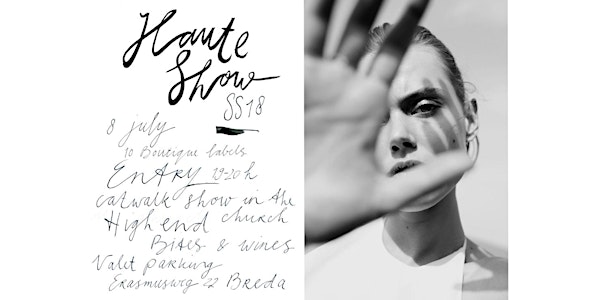 Haute
Show
SS18
8 july
10 Boutique labels
Entry 19-20 h
catwalk show in the
High end church
Bites & wines
Valet parking
Erasmusweg 22 Breda